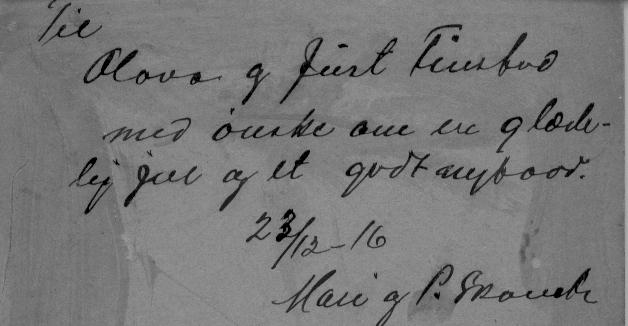 Til
Olava og Just Finsbød
med ønske om en glæde-
lig jul og et godt nybaar.
23/12-16
Mari og P.